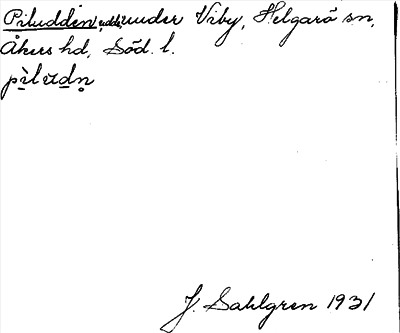 Piludden, udde, under Viby, Helgarö sn,
Åkers hd, Söd. l.
J. Sahlgren 1931